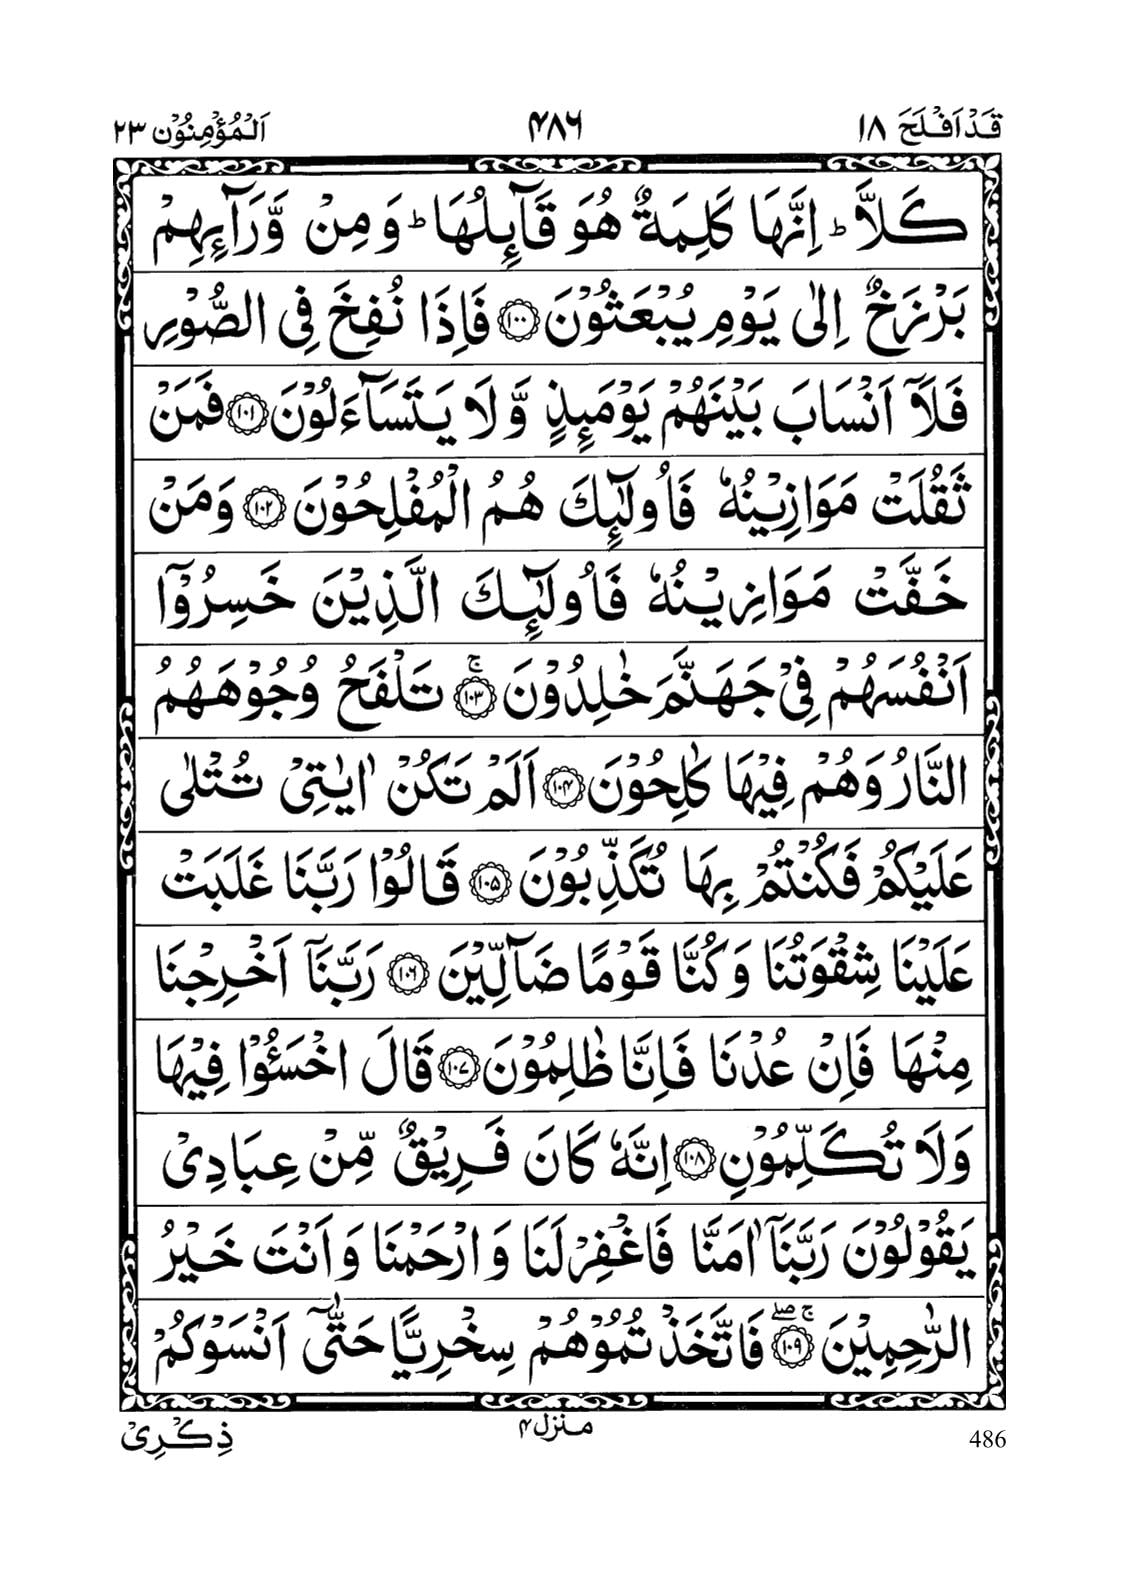 قَدْ اَفْلَحَ ١٨
٤٨٦
اَلْمُؤْمِنُوْن ٢٣
كَلَّا ؕ اِنَّهَا كَلِمَةٌ هُوَ قَآىِٕلُهَا ؕ وَ مِنْ وَّرَآىِٕهِمْ
بَرْزَخٌ اِلٰى يَوْمِ يُبْعَثُوْنَ ﴿١٠٠﴾ فَاِذَا نُفِخَ فِى الصُّوْرِ
فَلَآ اَنْسَابَ بَيْنَهُمْ يَوْمَىِٕذٍ وَّ لَا يَتَسَآءَلُوْنَ ﴿١٠١﴾ فَمَنْ
ثَقُلَتْ مَوَازِيْنُهٗ فَاُولٰٓىِٕكَ هُمُ الْمُفْلِحُوْنَ ﴿١٠٢﴾ وَمَنْ
خَفَّتْ مَوَازِيْنُهٗ فَاُولٰٓىِٕكَ الَّذِيْنَ خَسِرُوْٓا
اَنْفُسَهُمْ فِيْ جَهَنَّمَ خٰلِدُوْنَ ﴿١٠٣﴾ ۚ تَلْفَحُ وُجُوْهَهُمُ
النَّارُ وَهُمْ فِيْهَا كٰلِحُوْنَ ﴿١٠٤﴾ اَلَمْ تَكُنْ اٰيٰتِيْ تُتْلٰى
عَلَيْكُمْ فَكُنْتُمْ بِهَا تُكَذِّبُوْنَ ﴿١٠٥﴾ قَالُوْا رَبَّنَا غَلَبَتْ
عَلَيْنَا شِقْوَتُنَا وَكُنَّا قَوْمًا ضَآلِّيْنَ ﴿١٠٦﴾ رَبَّنَآ اَخْرِجْنَا
مِنْهَا فَاِنْ عُدْنَا فَاِنَّا ظٰلِمُوْنَ ﴿١٠٧﴾ قَالَ اخْسَـُٔوْا فِيْهَا
وَلَا تُكَلِّمُوْنِ ﴿١٠٨﴾ اِنَّهٗ كَانَ فَرِيْقٌ مِّنْ عِبَادِيْ
يَقُوْلُوْنَ رَبَّنَآ اٰمَنَّا فَاغْفِرْ لَنَا وَ ارْحَمْنَا وَ اَنْتَ خَيْرُ
الرّٰحِمِيْنَ ﴿١٠٩﴾ ۚۖ فَاتَّخَذْتُمُوْهُمْ سِخْرِيًّا حَتّٰٓى اَنْسَوْكُمْ
ذِكْرِيْ
منزل ٤
486